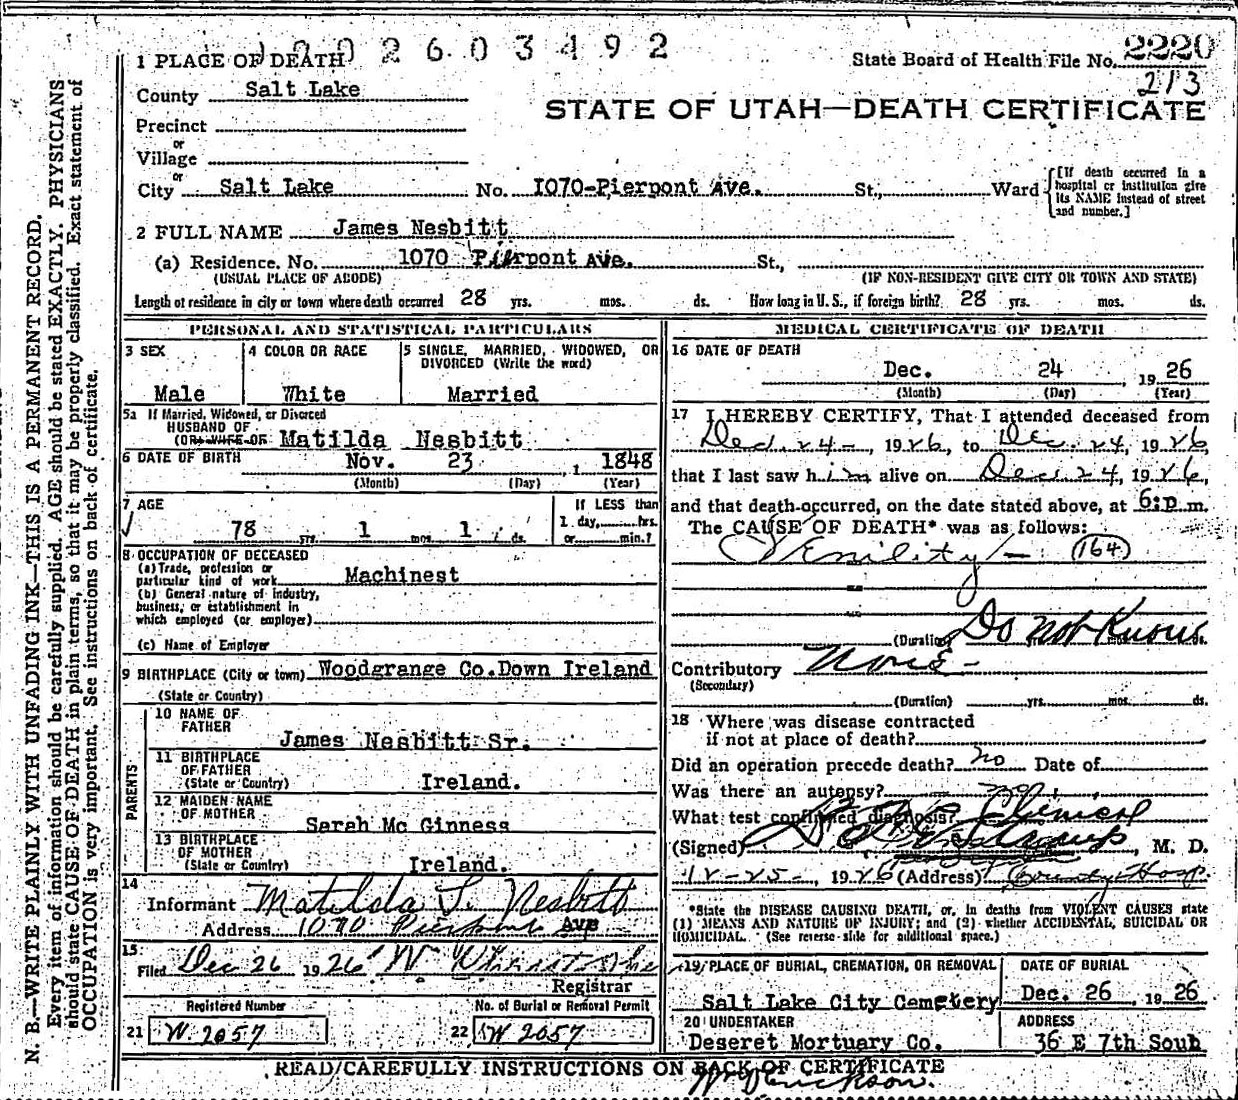 1 PLACE OF DEATH 1002603492
State Board of Health File No. 2220
213
County Salt Lake
STATE OF UTAH—DEATH CERTIFICATE
Precinct
or
Village
or
City Salt Lake No. 1070-Pierpont Ave. St., Ward
[If death occurred in a hospital or institution give its NAME instead of street and number.]
2 FULL NAME James Nesbitt
(a) Residence. No. 1070 Pierpont Ave. St.,
(USUAL PLACE OF ABODE) (IF NON-RESIDENT GIVE CITY OR TOWN AND STATE)
Length of residence in city or town where death occurred 28 yrs. mos. ds. How long in U. S., if foreign birth? 28 yrs. mos. ds.
PERSONAL AND STATISTICAL PARTICULARS
3 SEX 4 COLOR OR RACE 5 SINGLE, MARRIED, WIDOWED, OR
DIVORCED (Write the word)
Male White Married
5a If Married, Widowed, or Divorced
HUSBAND OF
(OR WIFE OF Matilda Nesbitt
6 DATE OF BIRTH Nov. 23, 1848
(Month) (Day) (Year)
7 AGE If LESS than
78 yrs. 1 mos. 1 ds. 1 day, hrs.
or min.?
8 OCCUPATION OF DECEASED
(a) Trade, profession or
particular kind of work Machinest
(b) General nature of industry,
business, or establishment in
which employed (or employer)
(c) Name of Employer
9 BIRTHPLACE (City or town) Woodgrange Co.Down Ireland
(State or Country)
PARENTS
10 NAME OF
FATHER
James Nesbitt Sr.
11 BIRTHPLACE
OF FATHER
(State or Country) Ireland.
12 MAIDEN NAME
OF MOTHER
Sarah Mc Ginness
13 BIRTHPLACE
OF MOTHER
(State or Country) Ireland.
14
Informant Matilda J. Nesbitt
Address 1070 Pierpont Ave
15
Filed Dec 26 1926 W
Registrar
Registered Number No. of Burial or Removal Permit
21 W. 2057 22 W 2057
MEDICAL CERTIFICATE OF DEATH
16 DATE OF DEATH
Dec. 24, 1926
(Month) (Day) (Year)
17 I HEREBY CERTIFY, That I attended deceased from
Dec. 24-, 1926, to Dec. 24, 1926,
that I last saw him alive on Dec 24, 1926,
and that death occurred, on the date stated above, at 6:p m.
The CAUSE OF DEATH* was as follows:
Senility - 164
(Duration) Do not Know ds.
Contributory None -
(Secondary)
(Duration) yrs. mos. ds.
18 Where was disease contracted
if not at place of death?
Did an operation precede death? no Date of
Was there an autopsy? no
What test confirmed diagnosis? Clinical
(Signed) M. D.
12-25-, 1926 (Address) County Hosp.
*State the DISEASE CAUSING DEATH, or, in deaths from VIOLENT CAUSES state
(1) MEANS AND NATURE OF INJURY; and (2) whether ACCIDENTAL, SUICIDAL OR
HOMICIDAL. (See reverse side for additional space.)
19 PLACE OF BURIAL, CREMATION, OR REMOVAL DATE OF BURIAL
Salt Lake City Cemetery Dec. 26, 1926
20 UNDERTAKER ADDRESS
Deseret Mortuary Co. 36 E 7th South
READ CAREFULLY INSTRUCTIONS ON BACK OF CERTIFICATE
N. B.—WRITE PLAINLY WITH UNFADING INK—THIS IS A PERMANENT RECORD.
Every item of information should be carefully supplied. AGE should be stated EXACTLY. PHYSICIANS
should state CAUSE OF DEATH in plain terms, so that it may be properly classified. Exact statement of
OCCUPATION is very important. See instructions on back of certificate.